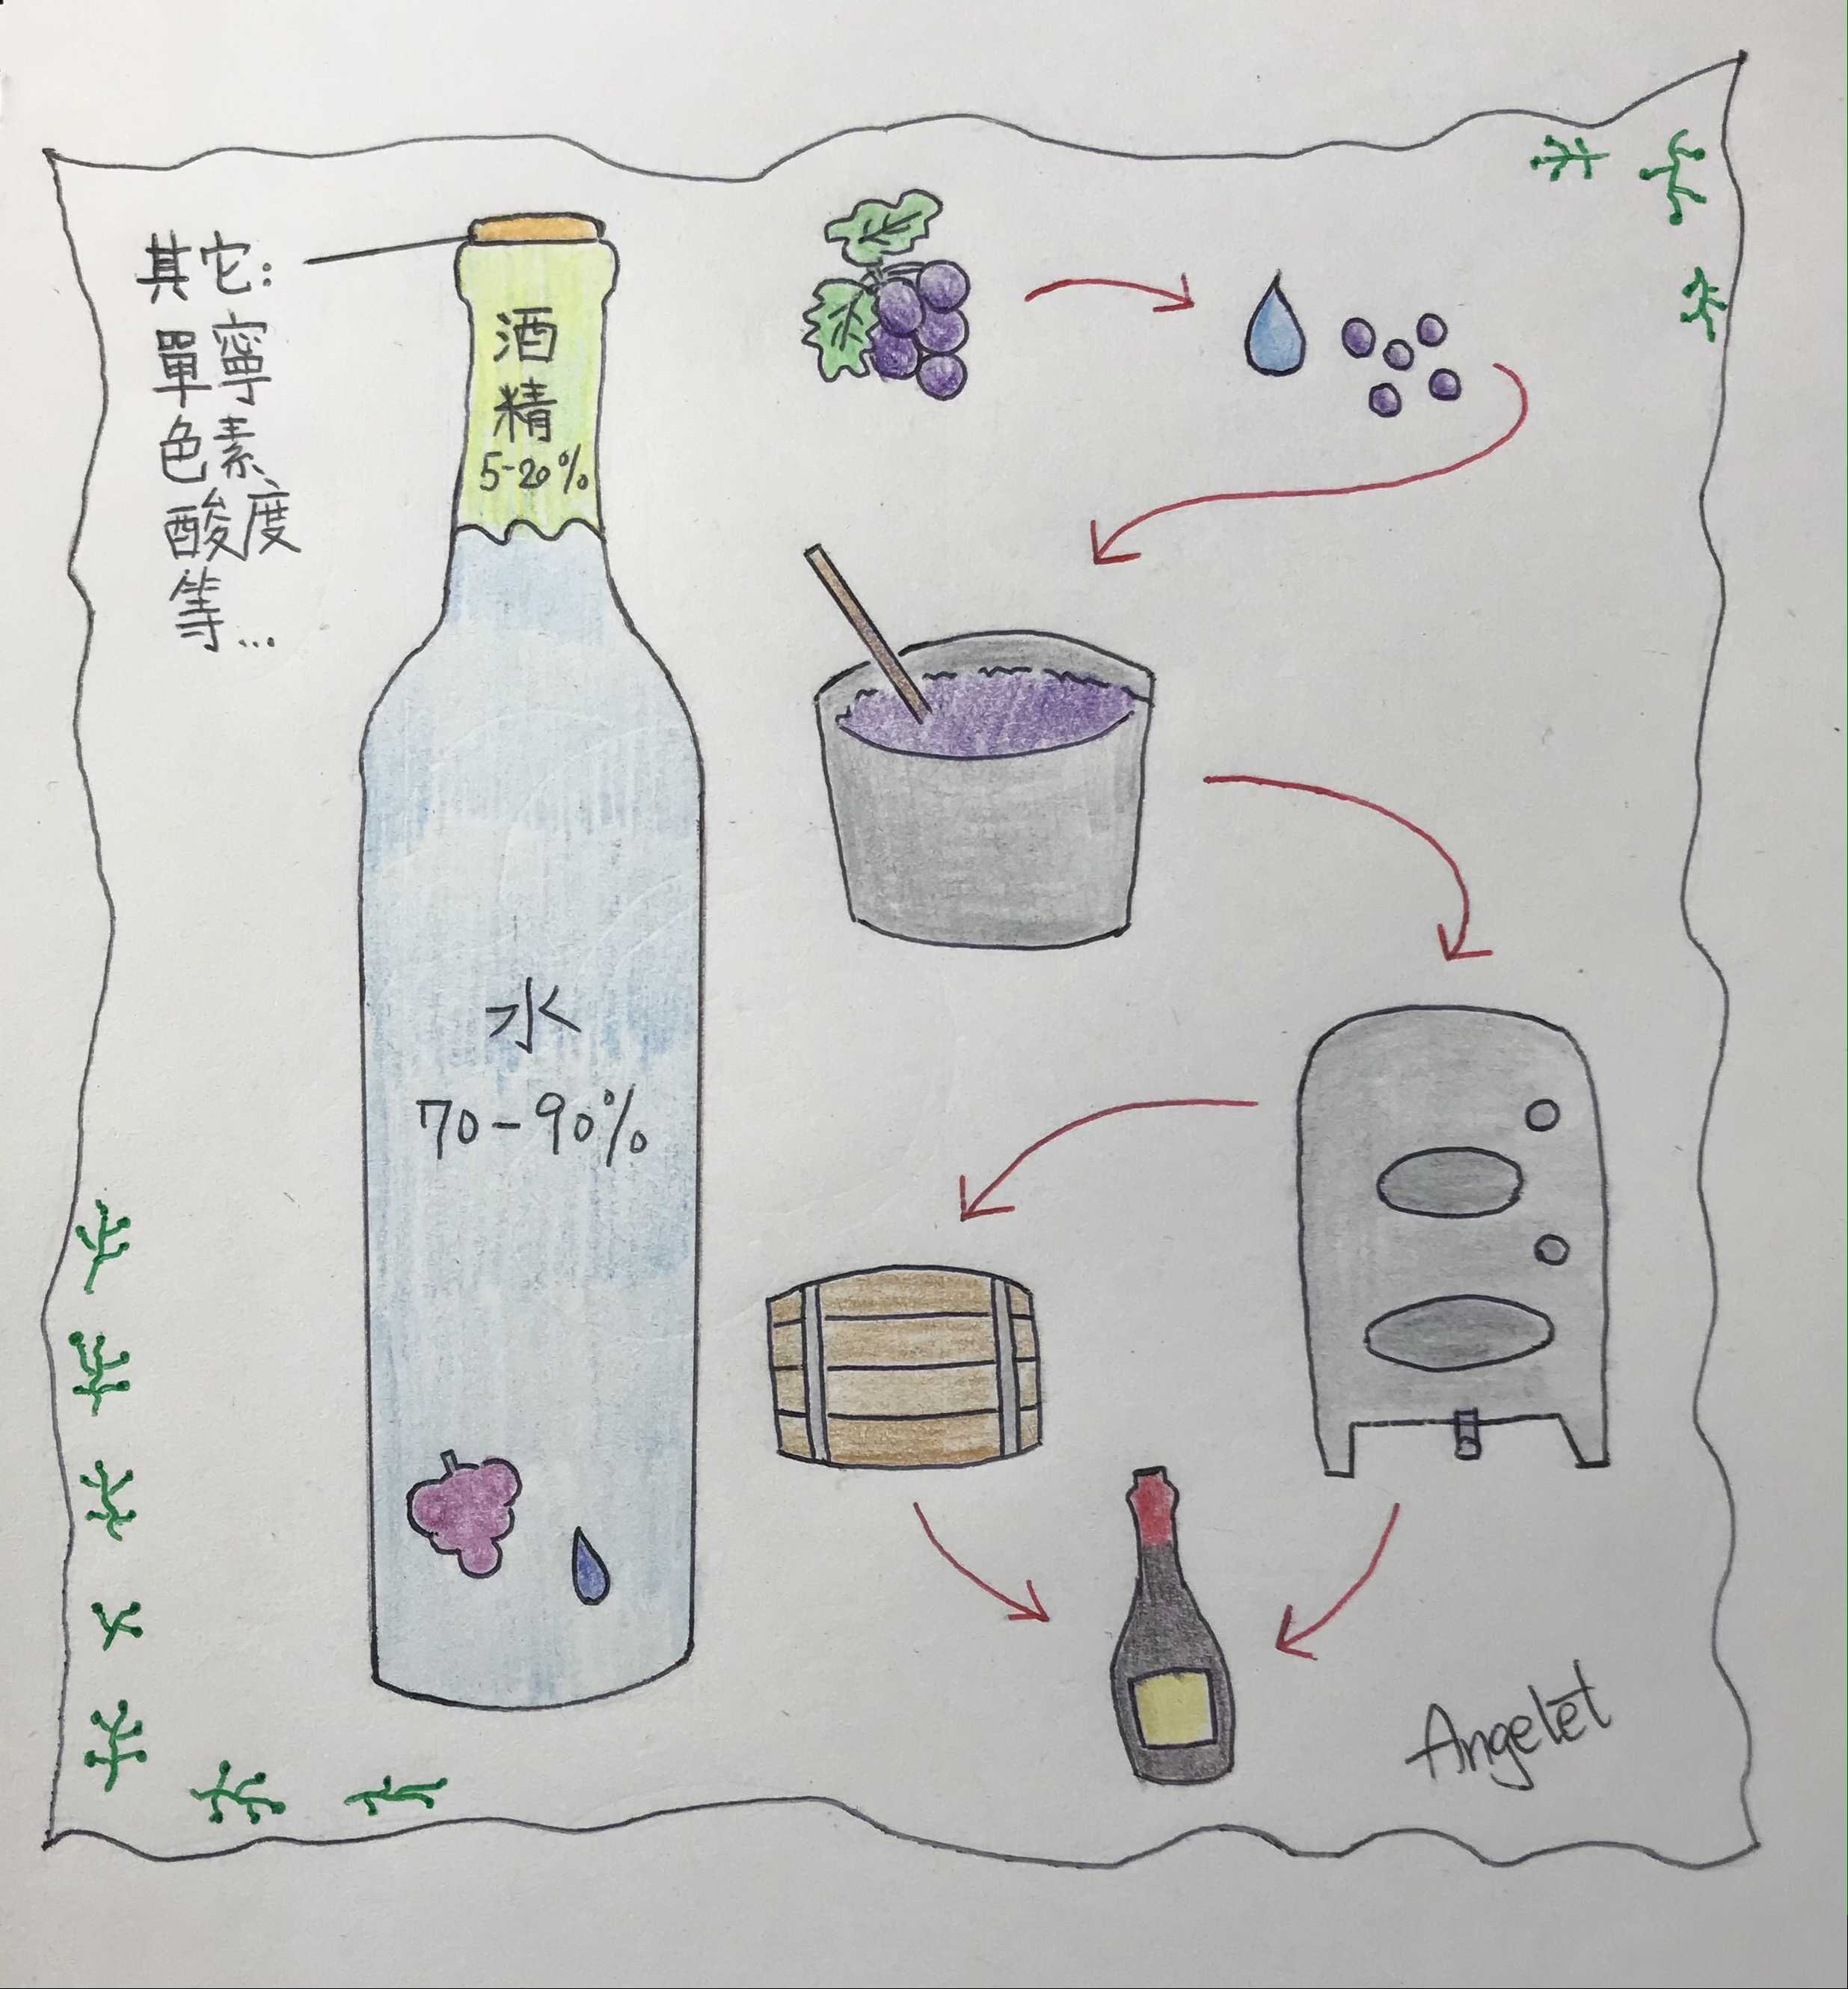 其它:
單寧
色素、
酸度
等...
酒
精
5-20%
水
70-90%
Angelet